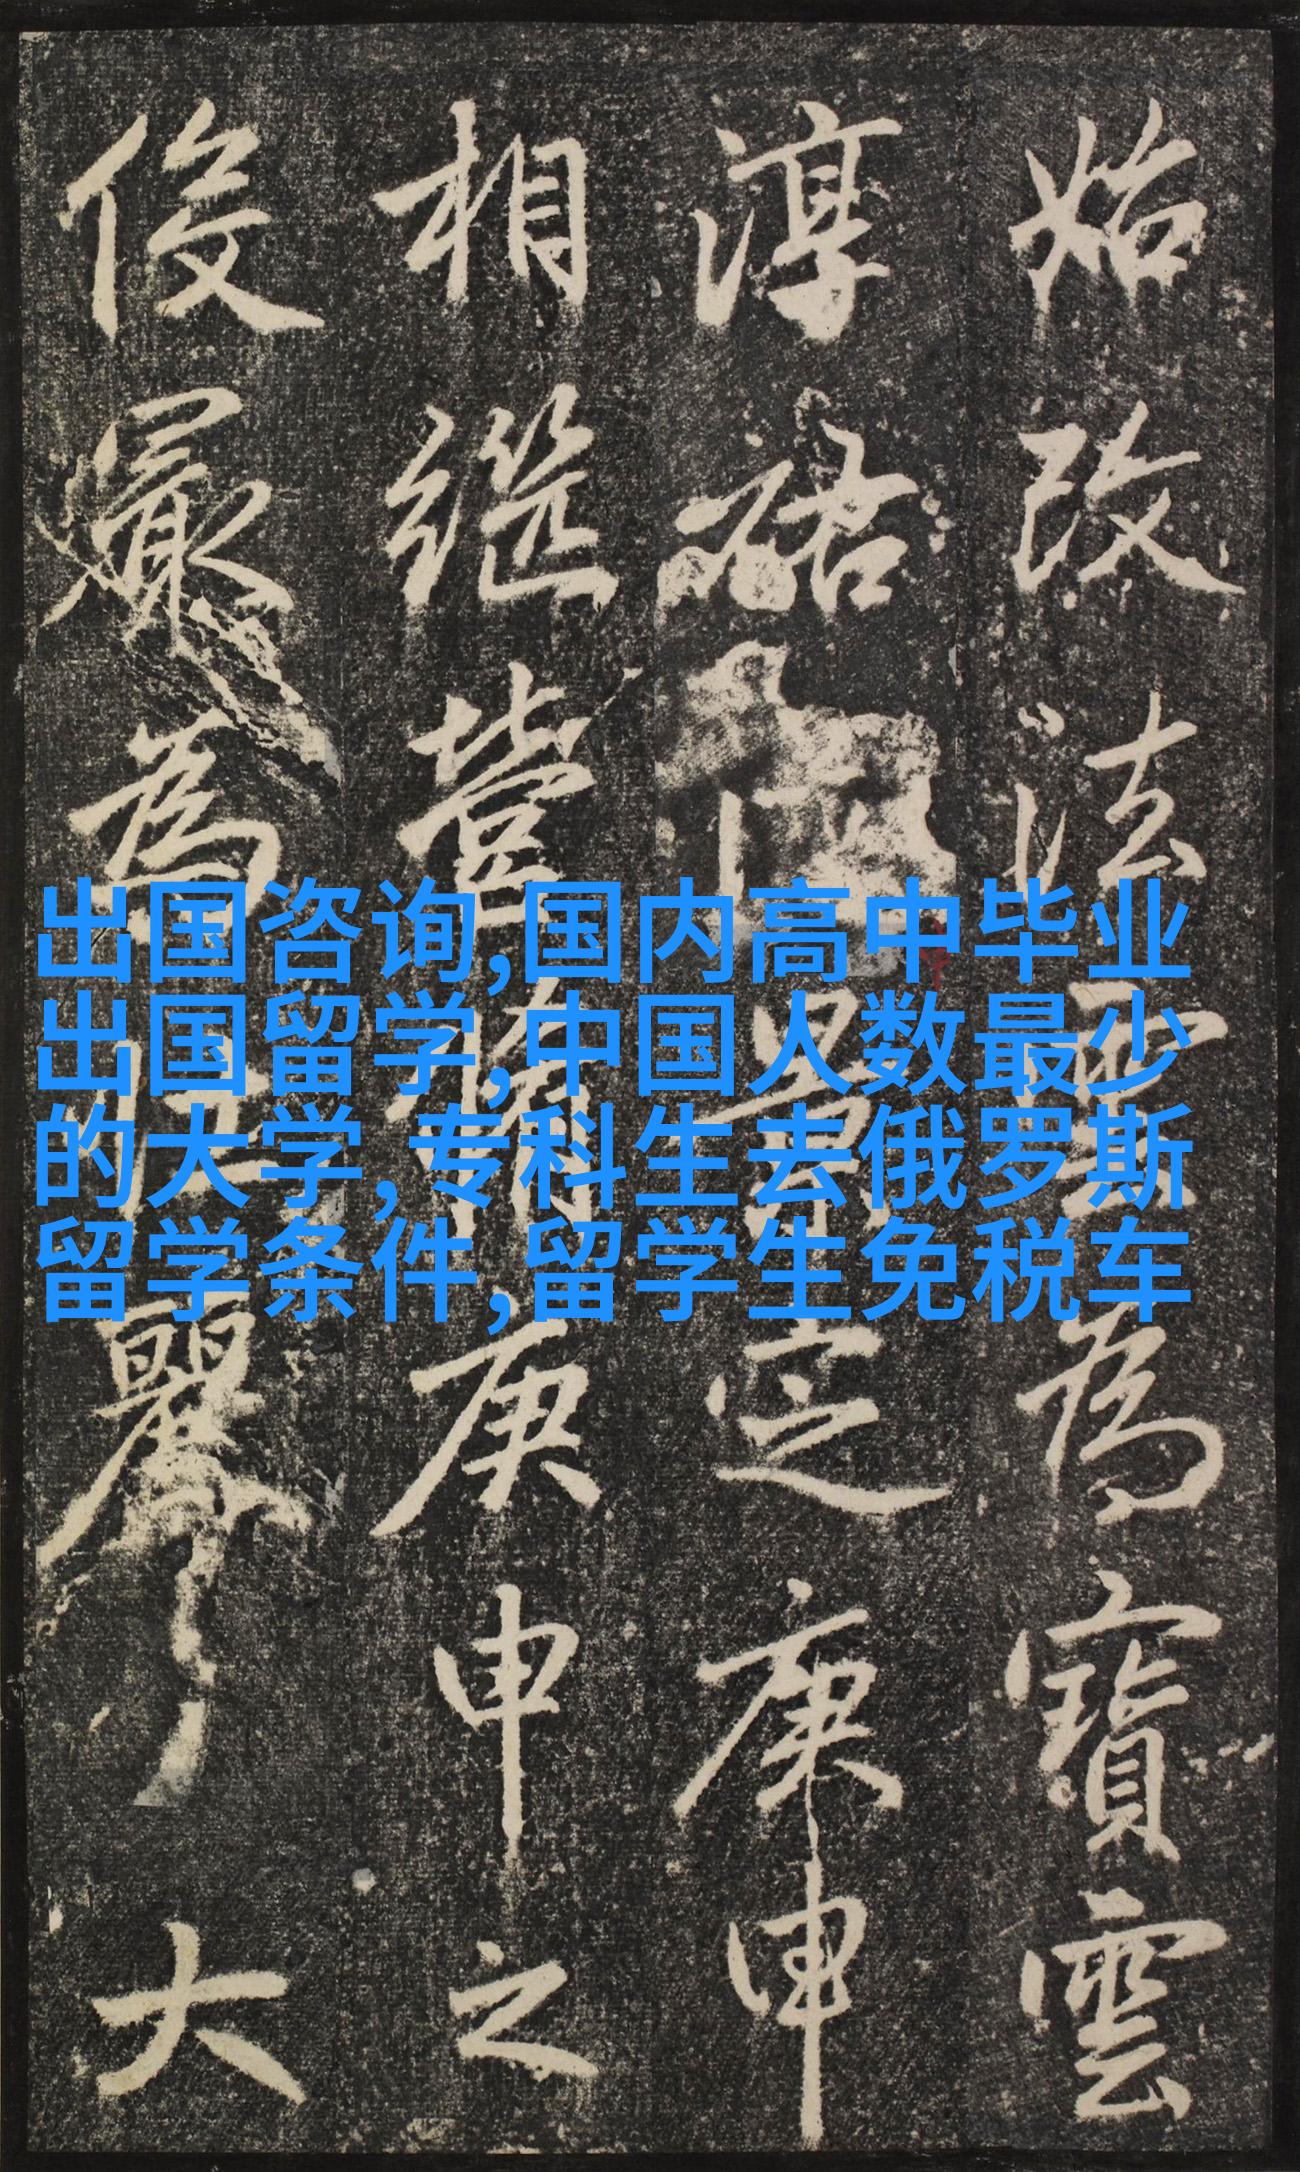 始改法為寶雲
淳祐景定庚申
相繼營繕庚申之
俊冣為壯麗大
出国咨询,国内高中毕业
出国留学,中国人数最少
的大学,专科生去俄罗斯
留学条件,留学生免税车